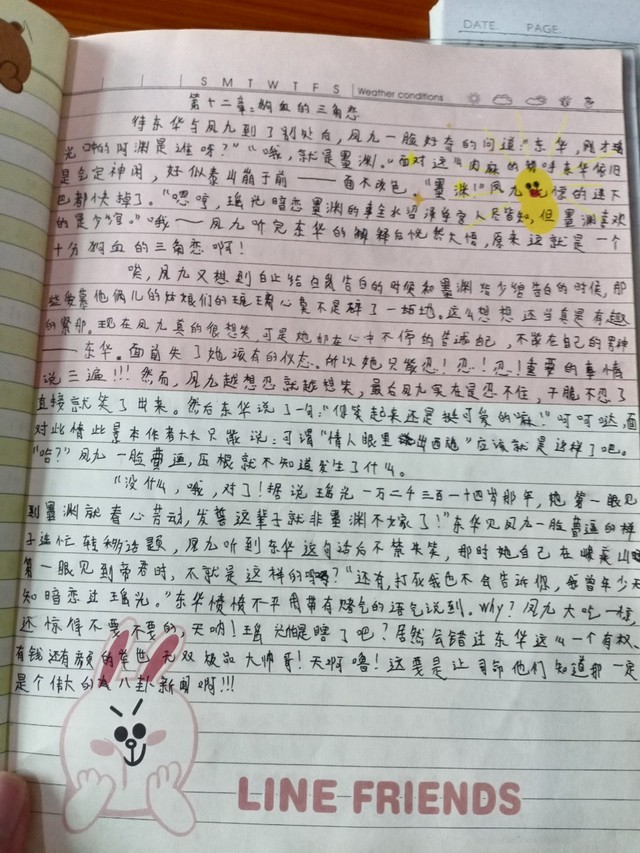 DATE. PAGE.
S M T W T F S Weather conditions
第十二章:狗血的三角恋
待东华与凤九到了别处后，凤九一脸好奇的问道:"东华，刚才瑶
光口中的阿渊是谁呀?""哦，就是墨渊。"面对这么肉麻的称呼东华依旧
是气定神闲，好似泰山崩于前——面不改色。"墨渊!"凤九惊的连下
巴都快掉了。"嗯哼，瑶光暗恋墨渊的事全水沼泽学宫人尽皆知,但墨渊喜欢
的是少绾。"哦——凤九听完东华的解释后恍然大悟,原来这就是一个
十分狗血的三角恋啊!
唉，凤九又想到白止给白夙告白的时候和墨渊给少绾告白的时候，那
些爱慕他俩儿的姑娘们的玻璃心莫不是碎了一地。这么想想还当真是有趣
的紧那。现在凤九真的很想笑,可是她却在心中不停的告诫自己，不能在自己的男神
——东华。面前失了她该有的仪态。所以她只能忍!忍!忍!重要的事情
说三遍!!!然而,凤九越想忍就越想笑，最后凤九实在是忍不住，干脆不忍了
直接就笑了出来。然后东华说了一句:"你笑起来还是挺可爱的嘛!"呵呵哒,面
对此情此景本作者大大只能说:可谓"情人眼里出西施"应该就是这样了吧。
"哈?"凤九一脸蒙逼,压根就不知道发生了什么。
"没什么，哦，对了!据说瑶光一万二千三百一十四岁那年，她第一眼见
到墨渊就春心芳动,发誓这辈子就非墨渊不嫁了!"东华见凤九一脸普逼的样
子连忙转移话题，凤九听到东华这句话后不禁失笑，那时她自己在
第一眼见到帝君时，不就是这样的吗?"还有,打死我也不会告诉你,我曾年少无
知暗恋过瑶光。"东华愤愤不平用带有怒气的语气说到。Why?凤九大吃一惊,
还惊得不要不要的,天呐!瑶光怕是瞎了吧?居然会错过东华这么一个有权、
有钱还有颜的举世无双极品大帅哥!天啊噜!这要是让司命他们知道那一定
是个伟大的八卦新闻啊!!!
LINE FRIENDS